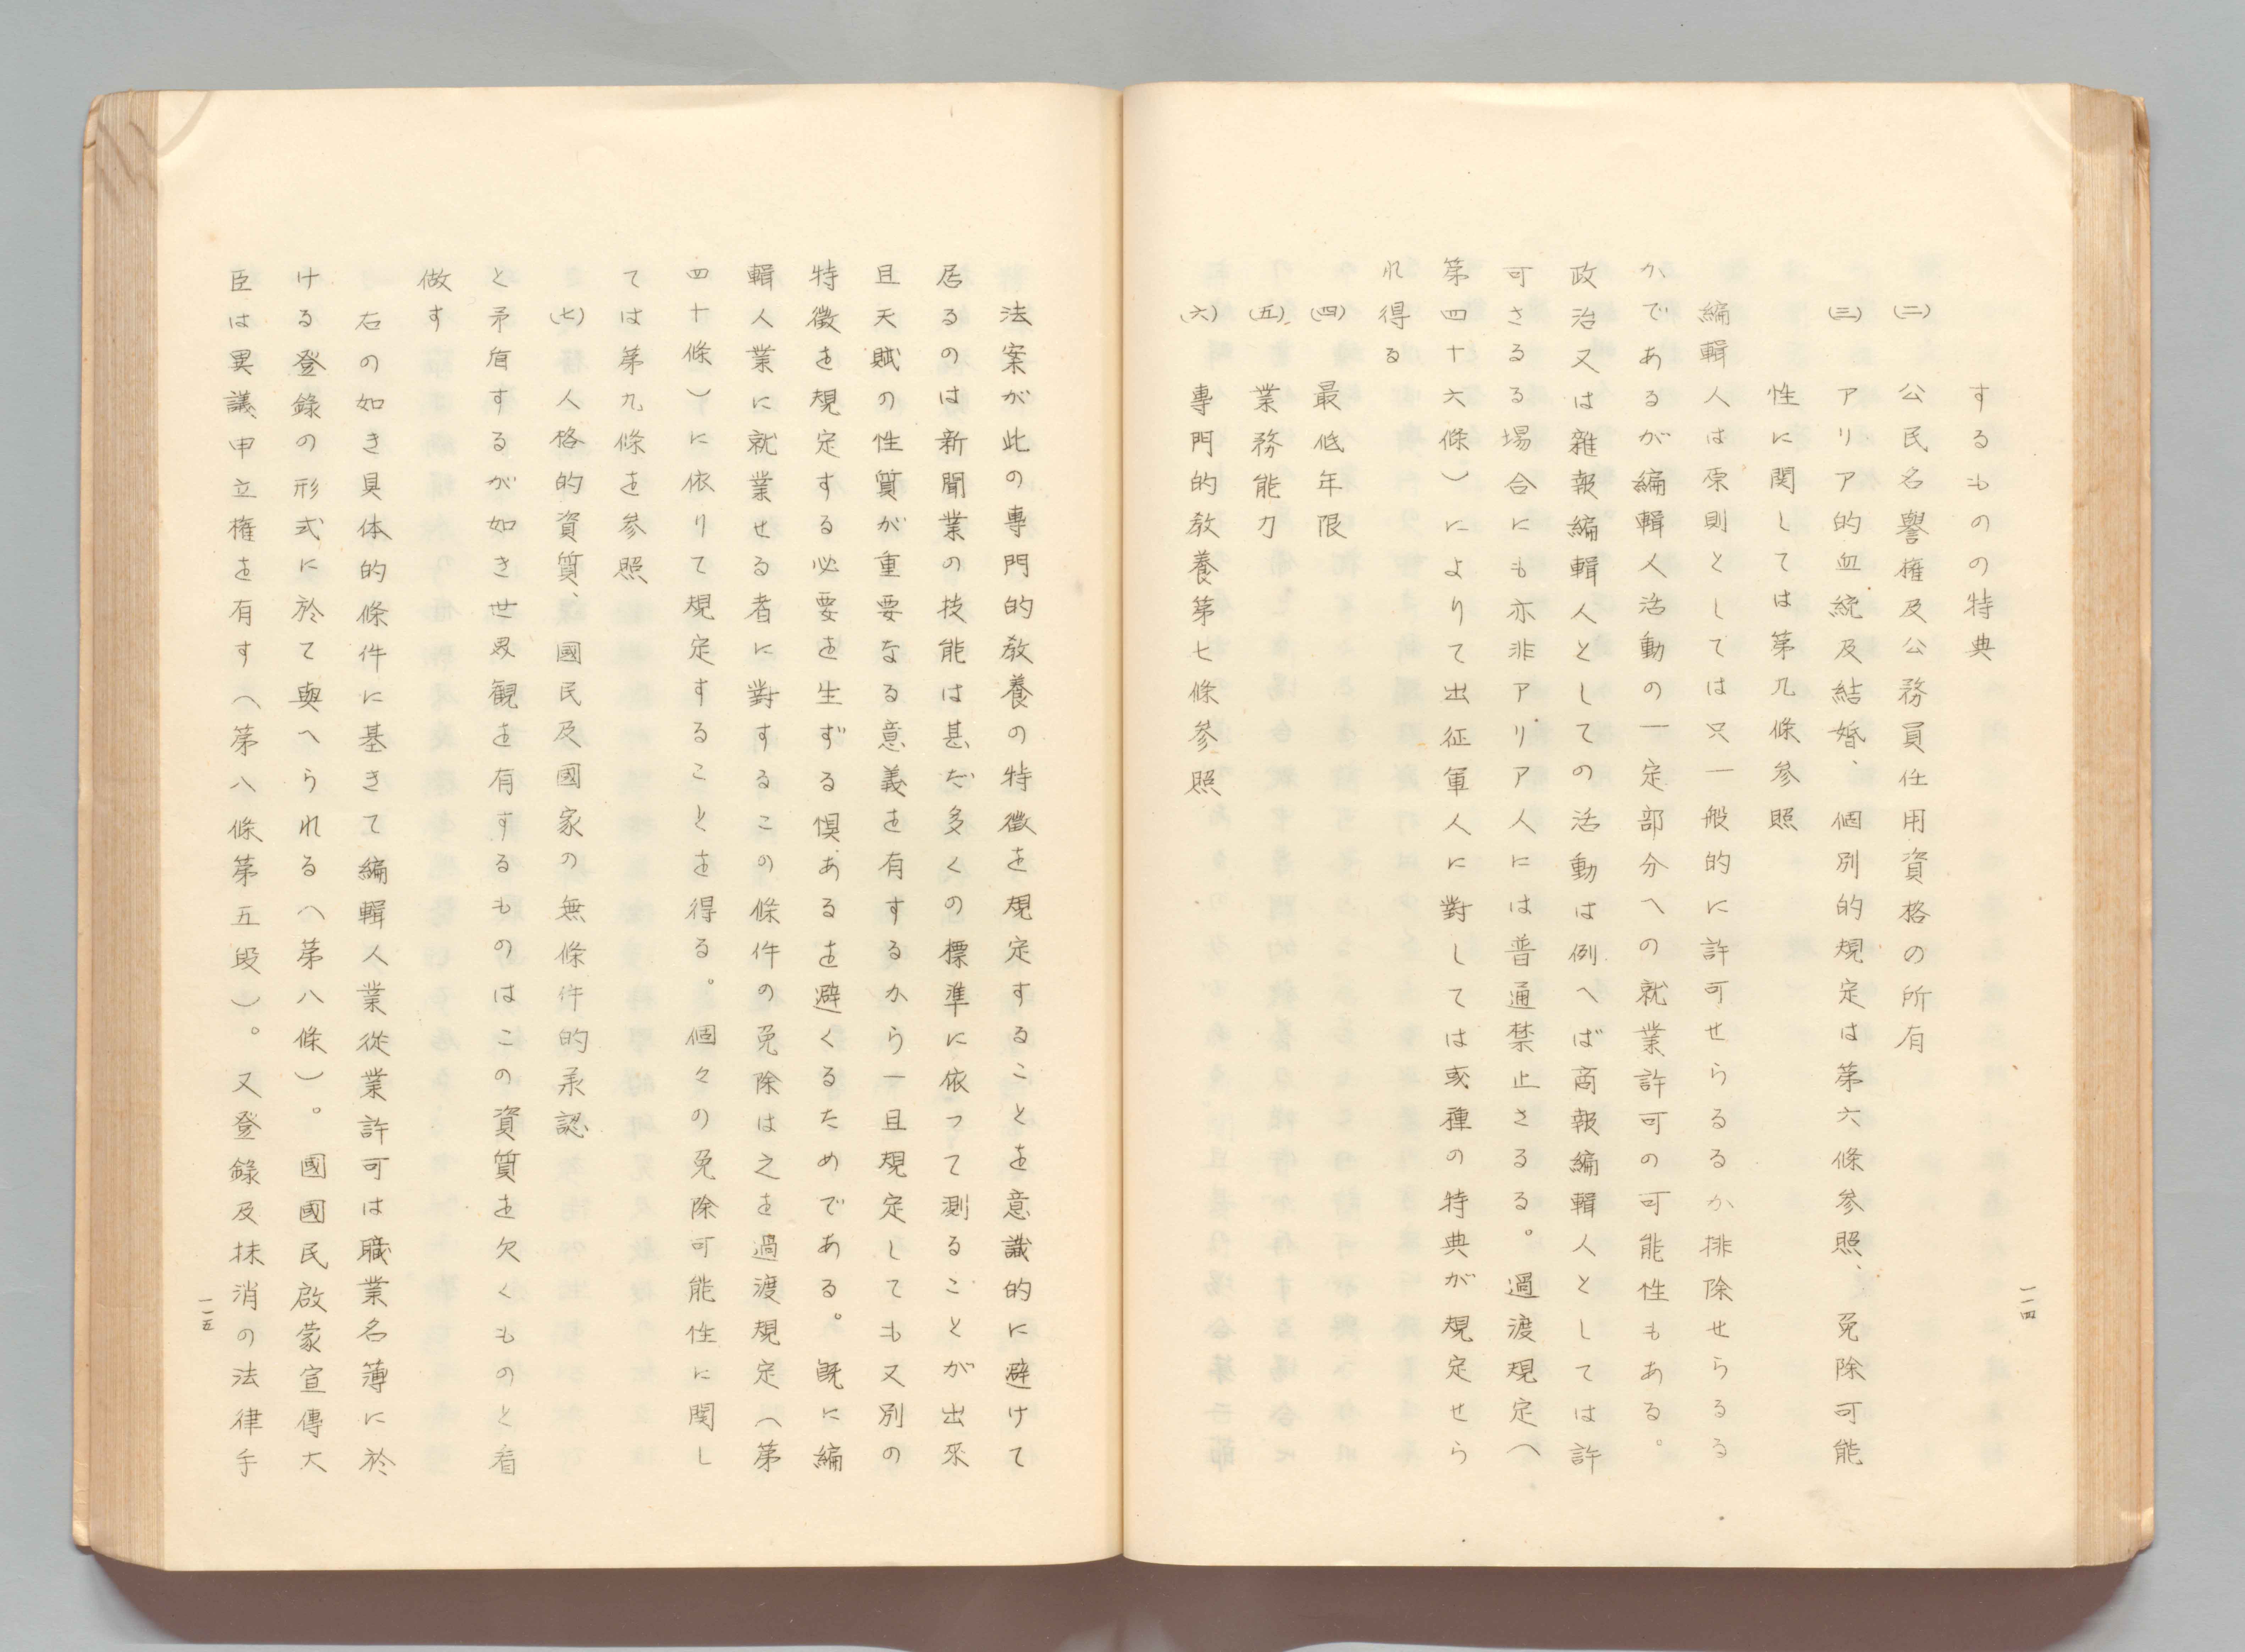 するものの特典
(二) 公民名譽權及公務員任用資格の所有
(三) アリア的血統及結婚、個別的規定は第六條參照、免除可能
性に関しては第九條參照
編輯人は原則としては只一般的に許可せらるるか排除せらるる
かであるが編輯人活動の一定部分への就業許可の可能性もある。
政治又は雜報編輯人としての活動は例へば商報編輯人としては許
可さるる場合にも亦非アリア人には普通禁止さるる。過渡規定(
第四十六條)によりて出征軍人に對しては或種の特典が規定せら
れ得る
(四) 最低年限
(五) 業務能力
(六) 專門的敎養第七條參照
一一四
法案が此の專門的敎養の特徵を規定することを意識的に避けて
居るのは新聞業の技能は甚だ多くの標準に依って測ることが出來
且天賦の性質が重要なる意義を有するから一且規定しても又別の
特徵を規定する必要を生ずる惧あるを避くるためである。既に編
輯人業に就業せる者に對するこの條件の免除は之を過渡規定(第
四十條)に依りて規定することを得る。個々の免除可能性に関し
ては第九條を參照
(七) 人格的資質、國民及國家の無條件的承認
と矛盾するが如き世界観を有するものはこの資質を欠くものと看
做す
右の如き具体的條件に基きて編輯人業從業許可は職業名簿に於
ける登錄の形式に於て與へられる(第八條)。國國民啟蒙宣傳大
臣は異議申立權を有す(第八條第五段)。又登錄及抹消の法律手
一一五